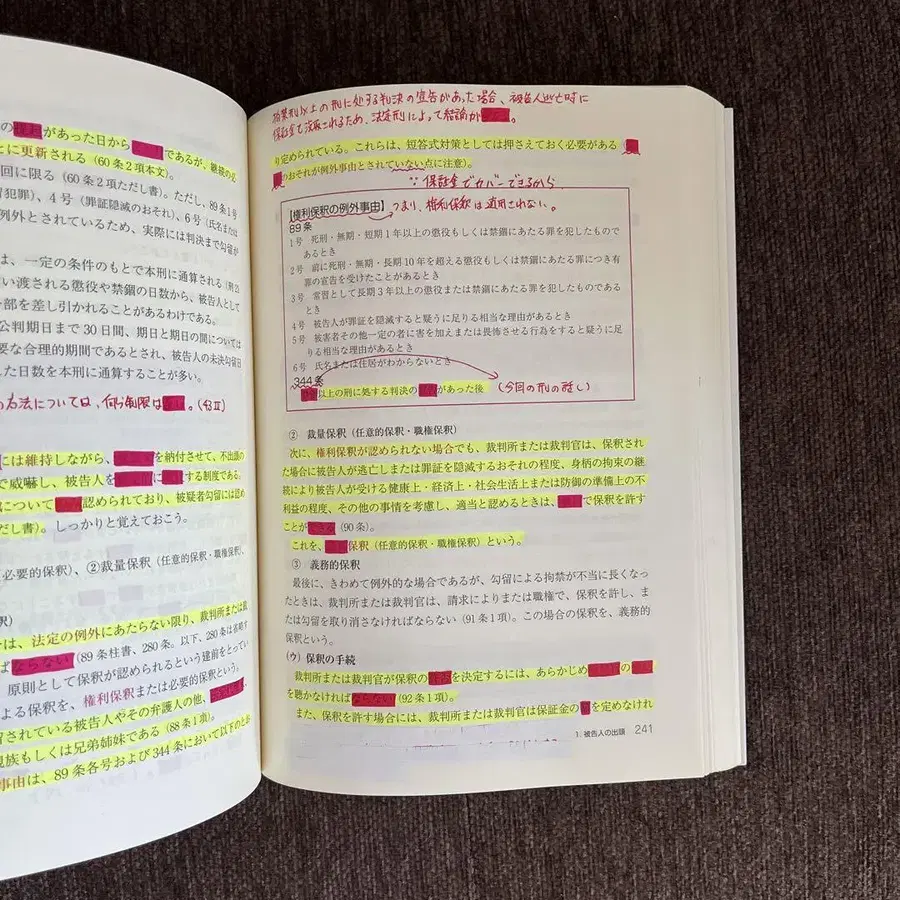 のがあった日からであるが、継続の必
とに更新される（60条2項本文）。
回に限る（60条2項ただし書）。ただし、89条1号
犯罪）、4号（罪証隠滅のおそれ）、6号（氏名または
例外とされているため、実際には判決まで勾留が
は、一定の条件のもとで本刑に通算される
い渡される懲役や禁錮の日数から、被告人として
部を差し引かれることがあるわけである。
公判期日まで30日間、期日と期日の間については
要な合理的期間であるとされ、被告人の未決勾留日
した日数を本刑に通算することが多い。
の方法については、何ら制限は。（43Ⅱ）
には維持しながら、を納付させて、不出頭の
で威嚇し、被告人をにする制度である。
について認められており、被疑者勾留には認め
だし書）。しっかりと覚えておこう。
必要的保釈）、②裁量保釈（任意的保釈・職権保釈）、
は、法定の例外にあたらない限り、裁判所または裁
ばならない（89条柱書、280条。以下、280条は省略す
原則として保釈が認められるという建前をとってい
よる保釈を、権利保釈または必要的保釈という。
留されている被告人やその弁護人の他、
親族もしくは兄弟姉妹である（88条1項）。
事由は、89条各号および344条において以下のとお
禁錮以上の刑に処する判決の宣告があった場合、被告人逃亡時に
保証金も没取されるため、法定刑によって結論が。
り定められている。これらは、短答式対策としては押さえておく必要がある（
のおそれが例外事由とされていない点に注意）。
∵保証金でカバーできるから
【権利保釈の例外事由】つまり、権利保釈は適用されない。
89条
1号 死刑・無期・短期1年以上の懲役もしくは禁錮にあたる罪を犯したもので
あるとき
2号 前に死刑・無期・長期10年を超える懲役もしくは禁錮にあたる罪につき有
罪の宣告を受けたことがあるとき
3号 常習として長期3年以上の懲役または禁錮にあたる罪を犯したものである
とき
4号 被告人が罪証を隠滅すると疑うに足りる相当な理由があるとき
5号 被害者その他一定の者に害を加えまたは畏怖させる行為をすると疑うに足
りる相当な理由があるとき
6号 氏名または住居がわからないとき
344条
以上の刑に処する判決のがあった後 （今回の刑の話し）
② 裁量保釈（任意的保釈・職権保釈）
次に、権利保釈が認められない場合でも、裁判所または裁判官は、保釈され
た場合に被告人が逃亡しまたは罪証を隠滅するおそれの程度、身柄の拘束の継
続により被告人が受ける健康上・経済上・社会生活上または防御の準備上の不
利益の程度、その他の事情を考慮し、適当と認めるときは、で保釈を許す
ことができる（90条）。
これを、保釈（任意的保釈・職権保釈）という。
③ 義務的保釈
最後に、きわめて例外的な場合であるが、勾留による拘禁が不当に長くなっ
たときは、裁判所または裁判官は、請求によりまたは職権で、保釈を許し、ま
たは勾留を取り消さなければならない（91条1項）。この場合の保釈を、義務的
保釈という。
(ウ) 保釈の手続
裁判所または裁判官が保釈の許否を決定するには、あらかじめの
を聴かなければならない（92条1項）。
また、保釈を許す場合には、裁判所または裁判官は保証金の額を定めなけれ
1. 被告人の出頭 241